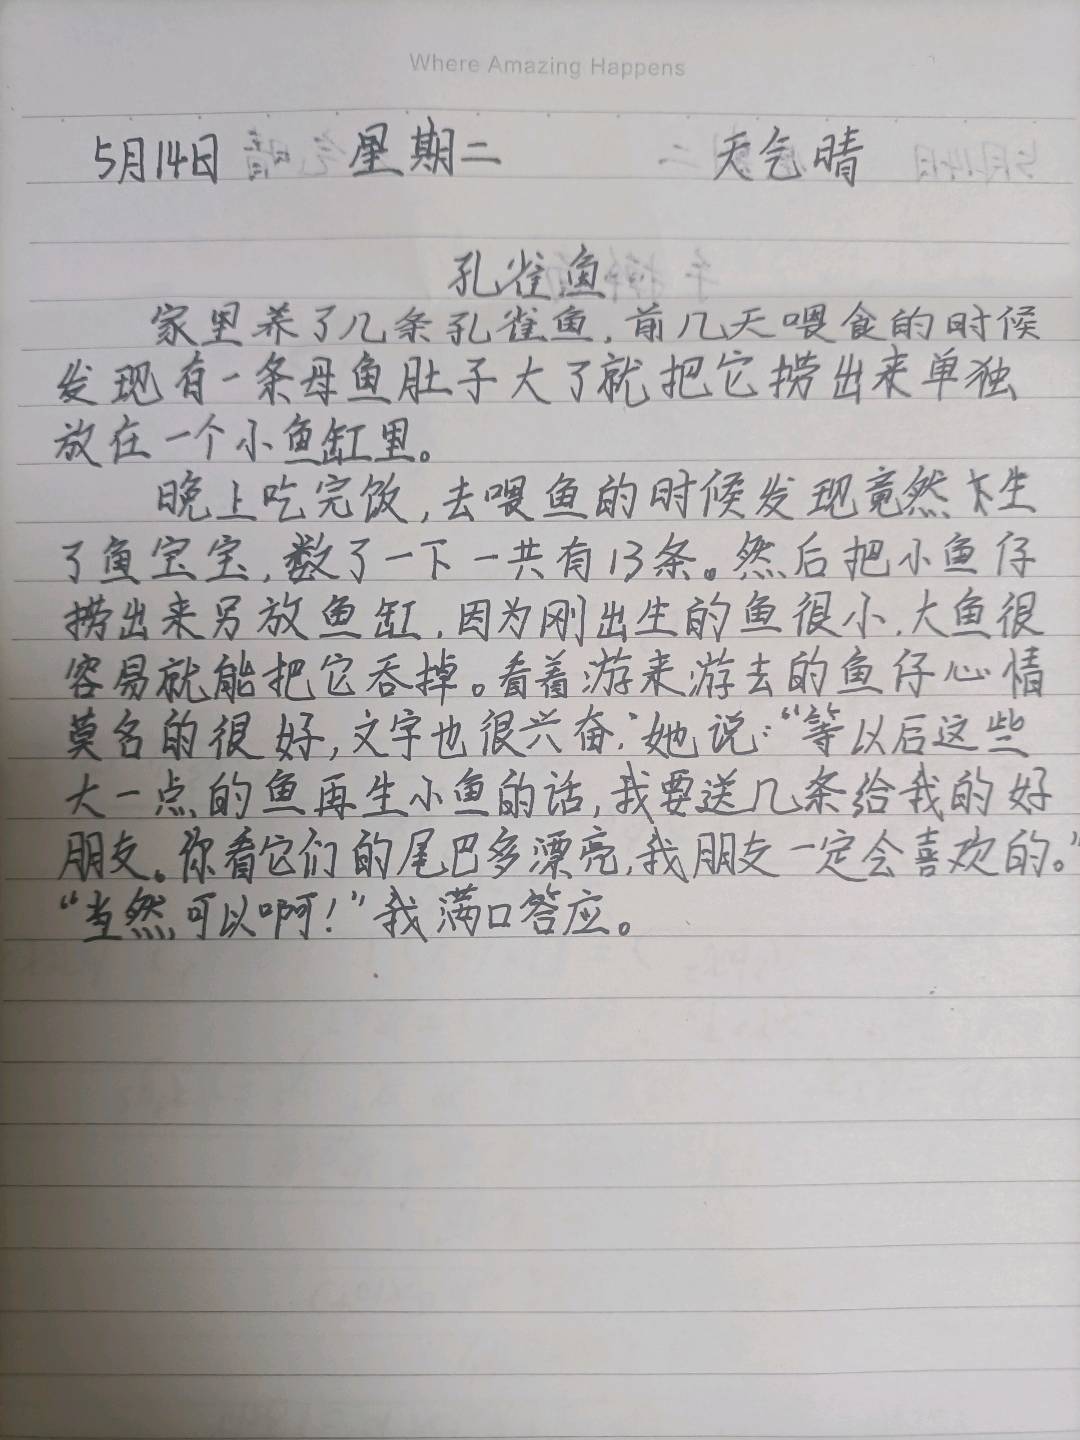 Where Amazing Happens
5月14日 星期二 天气晴
孔雀鱼
家里养了几条孔雀鱼,前几天喂食的时候
发现有一条母鱼肚子大了就把它捞出来单独
放在一个小鱼缸里。
晚上吃完饭,去喂鱼的时候发现竟然生
了鱼宝宝,数了一下一共有13条。然后把小鱼仔
捞出来另放鱼缸,因为刚出生的鱼很小,大鱼很
容易就能把它吞掉。看着游来游去的鱼仔心情
莫名的很好,文字也很兴奋;她说:“等以后这些
大一点的鱼再生小鱼的话,我要送几条给我的好
朋友。你看它们的尾巴多漂亮,我朋友一定会喜欢的。”
“当然可以啊!”我满口答应。